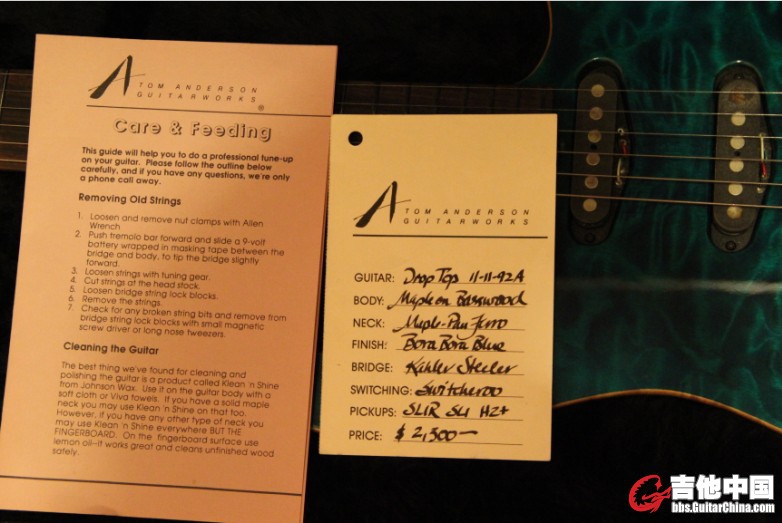 TOM ANDERSON
GUITARWORKS®
Care & Feeding
This guide will help you to do a professional tune-up
on your guitar. Please follow the outline below
carefully, and if you have any questions, we're only
a phone call away.
Removing Old Strings
1. Loosen and remove nut clamps with Allen
Wrench
2. Push tremolo bar forward and slide a 9-volt
battery wrapped in masking tape between the
bridge and body, to tip the bridge slightly
forward.
3. Loosen strings with tuning gear.
4. Cut strings at the head stock.
5. Loosen bridge string lock blocks.
6. Remove the strings.
7. Check for any broken string bits and remove from
bridge string lock blocks with small magnetic
screw driver or long nose tweezers.
Cleaning the Guitar
The best thing we've found for cleaning and
polishing the guitar is a product called Klean 'n Shine
from Johnson Wax. Use it on the guitar body with a
soft cloth or Viva towels. If you have a solid maple
neck you may use Klean 'n Shine on that too.
However, if you have any other type of neck you
may use Klean 'n Shine everywhere BUT THE
FINGERBOARD. On the fingerboard surface use
lemon oil--it works great and cleans unfinished wood
safely.
TOM ANDERSON
GUITARWORKS
GUITAR: Drop Top 11-11-92A
BODY: Maple on Basswood
NECK: Maple-Pau Ferro
FINISH: Bora Bora Blue
BRIDGE: Kahler Steeler
SWITCHING: Switcheroo
PICKUPS: SL1R SL1 H2+
PRICE: $2,300—
吉他中国
bbs.GuitarChina.com